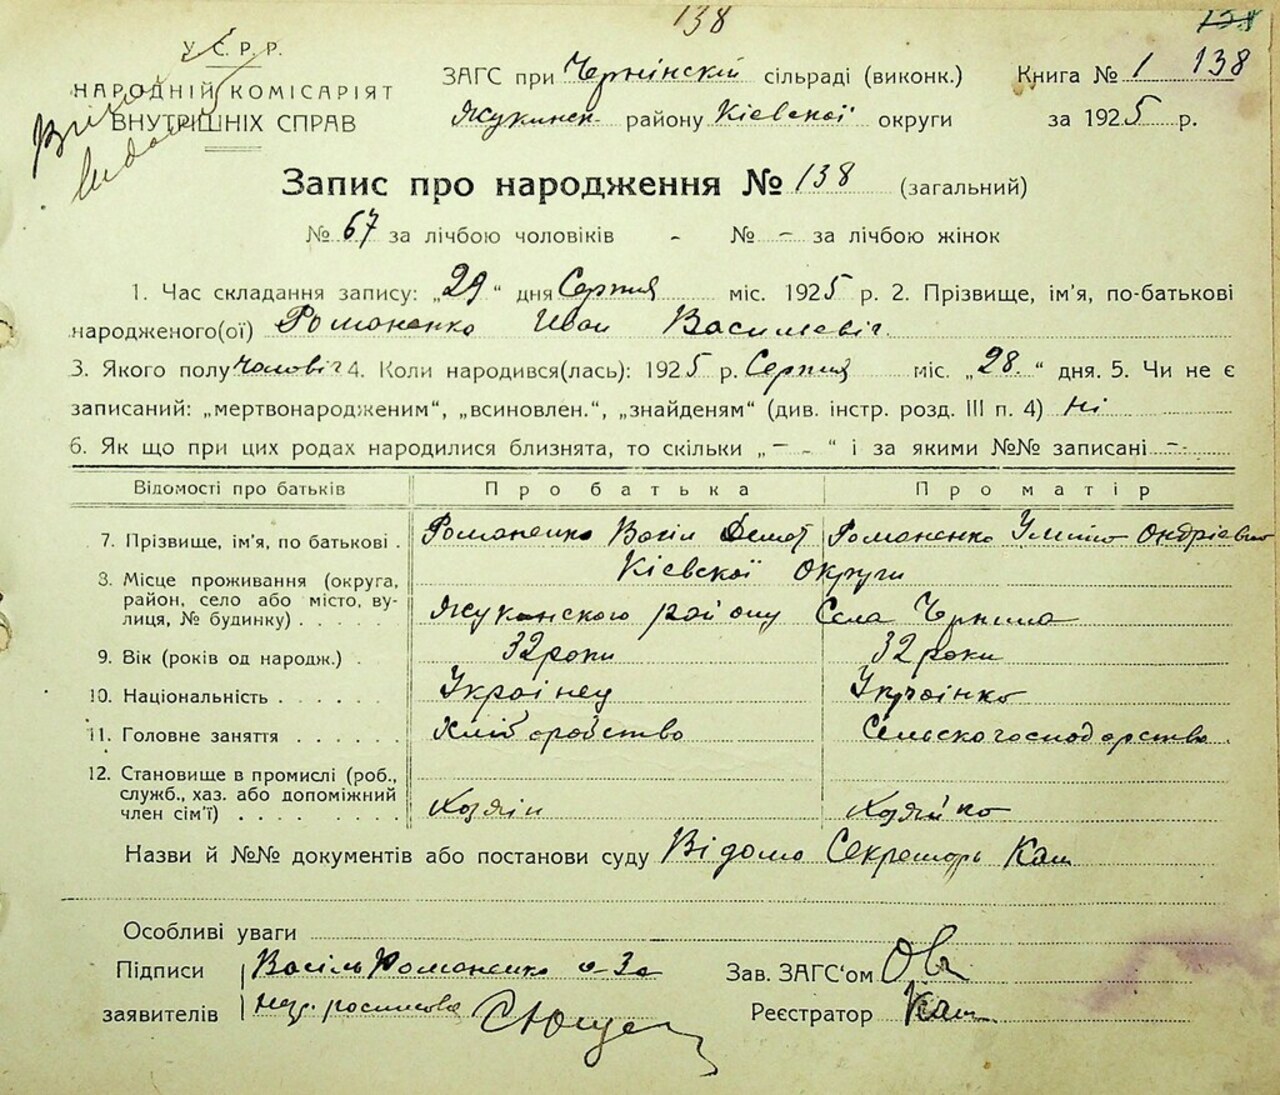 138
138
У.С.Р.Р.
ЗАГС при Чернінскій сільраді (виконк.) Книга № 1 138
НАРОДНІЙ КОМІСАРІЯТ
ВНУТРІШНІХ СПРАВ
Жукинск. району Кіевскої округи за 1925 р.
Запис про народження № 138 (загальний)
№ 67 за лічбою чоловіків - № - за лічбою жінок
1. Час складання запису: „29“ дня Серпня міс. 1925 р. 2. Прізвище, ім'я, по-батькові
народженого(ої) Романенко Иван Василевіч.
3. Якого полу чоловіч 4. Коли народився(лась): 1925 р. Серпня міс. „28.“ дня. 5. Чи не є
записаний: „мертвонародженим“, „всиновлен.“, „знайденям“ (див. інстр. розд. III п. 4) ні
6. Як що при цих родах народилися близнята, то скільки „ - “ і за якими №№ записані -
Відомості про батьків Про батька Про матір
7. Прізвище, ім'я, по батькові . Романенко Васіл Романенко Ондріевно
8. Місце проживання (округа, район, село або місто, вулиця, № будинку) . . . . . Кіевскої Округи
Жукинского району Села Чернина
9. Вік (років од народж.) . 32 роки 32 роки
10. Національність . . . . . . Українец Українко
11. Головне заняття . . . . . . Хліборобство Сельскогосподарство.
12. Становище в промислі (роб.,
служб., хаз. або допоміжний
член сім'ї) . . . . . . . . . Хозяін Хозяйко
Назви й №№ документів або постанови суду Відомо Секретарь Каш
Особливі уваги
Підписи Васіль Романенко а-За Зав. ЗАГС'ом
заявителів росписова Реєстратор Каш